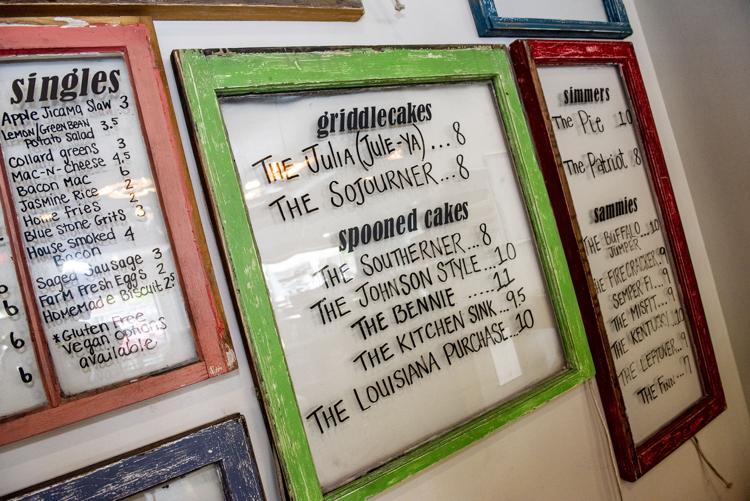 singles
Apple Jicama Slaw 3
Lemon/Green Bean 3.5
Potato Salad
Collard greens 3
Mac-N-Cheese 4.5
Bacon Mac 6
Jasmine Rice 2
Home Fries 2
Blue Stone Grits 3
House smoked 4
Bacon
Saged Sausage 3
Farm Fresh Eggs 2
Homemade Biscuit 2.5
*Gluten Free
Vegan options
available
6
6
6
griddlecakes
The Julia (Jule-Ya) ... 8
The Sojourner... 8
spooned cakes
The Southerner... 8
The Johnson Style... 10
The Bennie .... 11
The Kitchen Sink... 9.5
The Louisiana Purchase... 10
simmers
The Pie 10
The Patriot 8
sammies
The Buffalo...10
Jumper
The Firecracker 9
Semper Fi...9
The Misfit...9
The Kentucky 10
The Leftover...9
The Finn...7